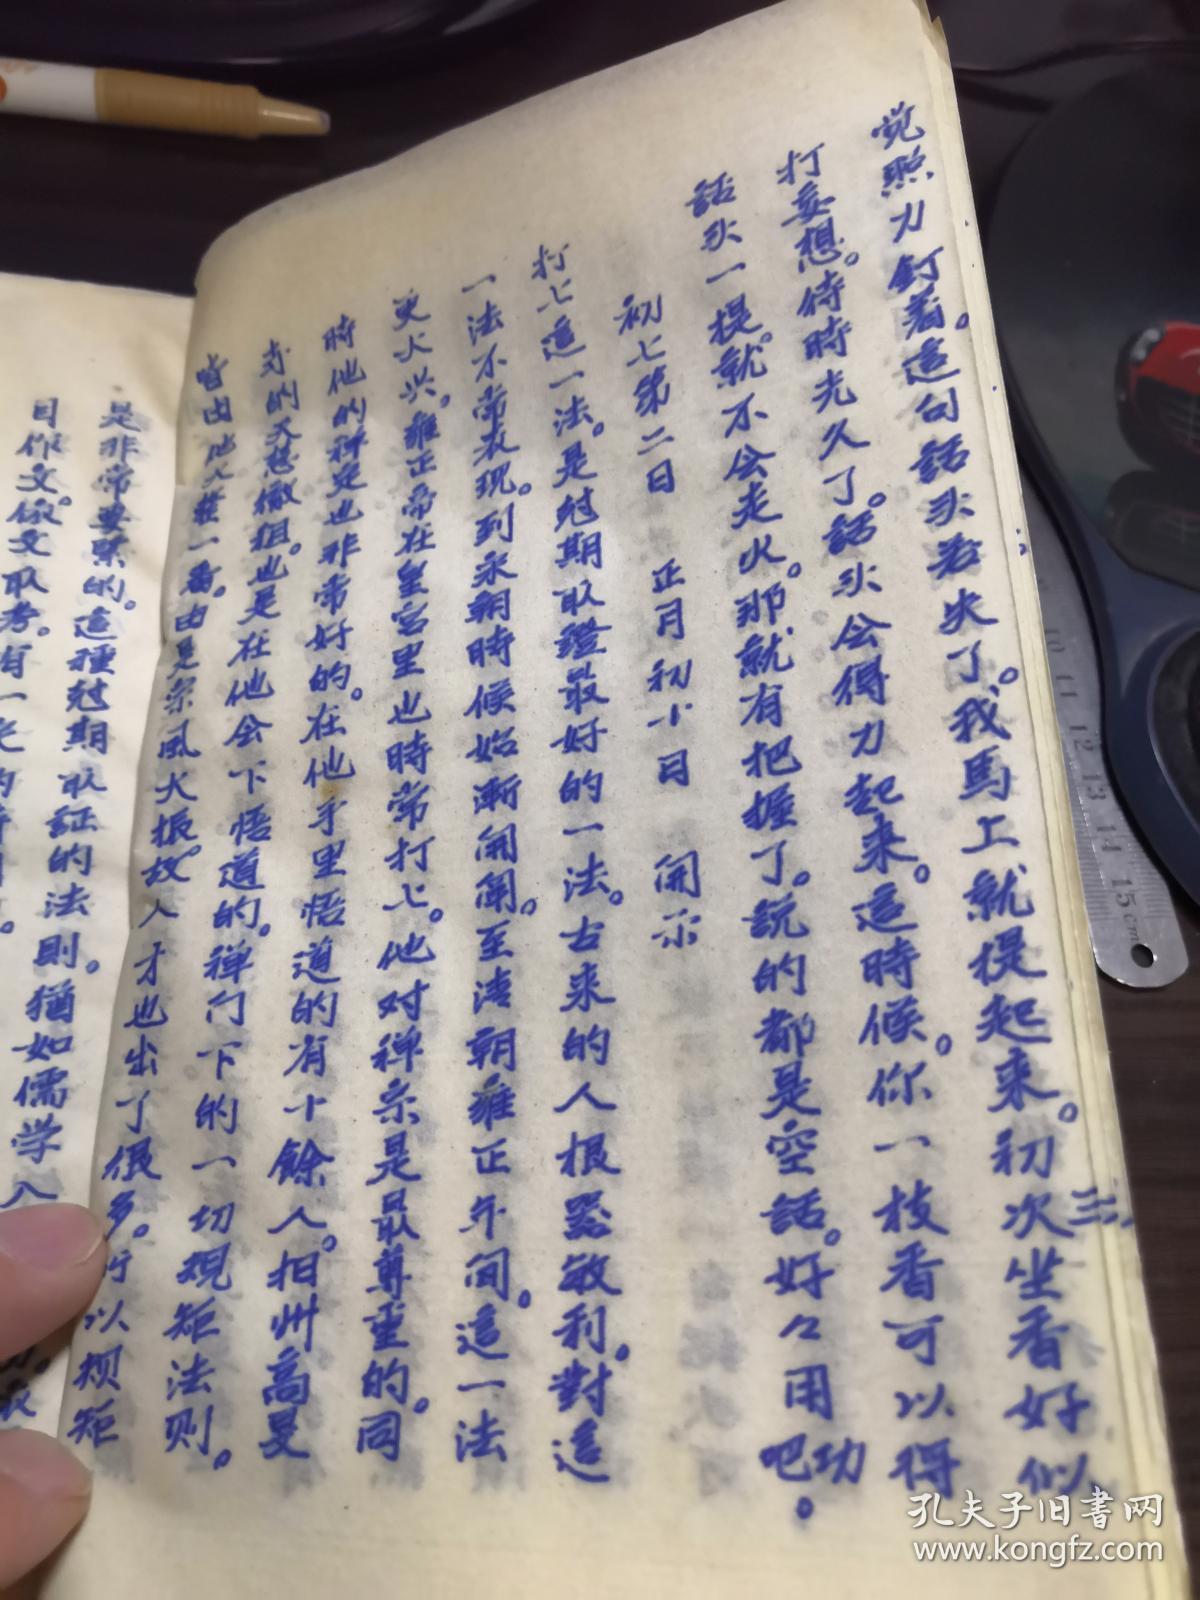 觉照力釘着。這句話头若失了。我馬上就提起来。初次坐香好似
打妄想。待時光久了。話头会得力起来。這時候。你一枝香可以得
話头一提。就不会走火。那就有把握了。説的都是空話。好々用功吧。
初七第二日 正月初十日 開示
打七這一法。是尅期取證最好的一法。古来的人根器敏利。對這
一法不常表现。到永朝時候始漸開闡。至清朝雍正年间。這一法
更大兴。雍正帝在皇宫里也時常打七。他对禅宗是最尊重的。同
時他的禅定也非常好的。在他手里悟道的有十餘人。扬州高旻
寺的天慧徹祖。也是在他会下悟道的。禅门下的一切规矩法则。
皆由他大整一番。由是宗风大振。故人才也出了很多。所以规矩
是非常要緊的。這種尅期取証的法則。猶如儒学入
目作文。依文取考。有一定的時間。
三
孔夫子旧書网
www.kongfz.com
10 11 12 13 14 15cm